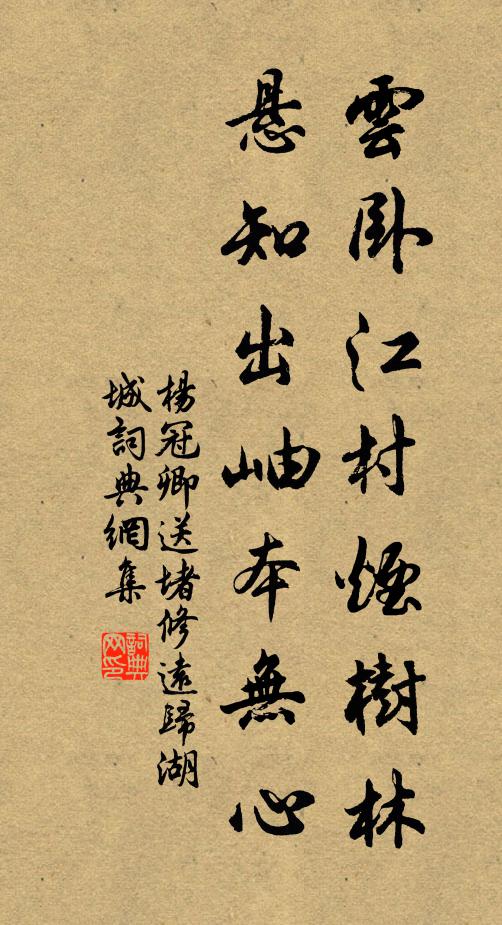 雲臥江村煙樹林
懸知出岫本無心
楊冠卿送堵修遠歸湖
城詞典網集
詞典
网印